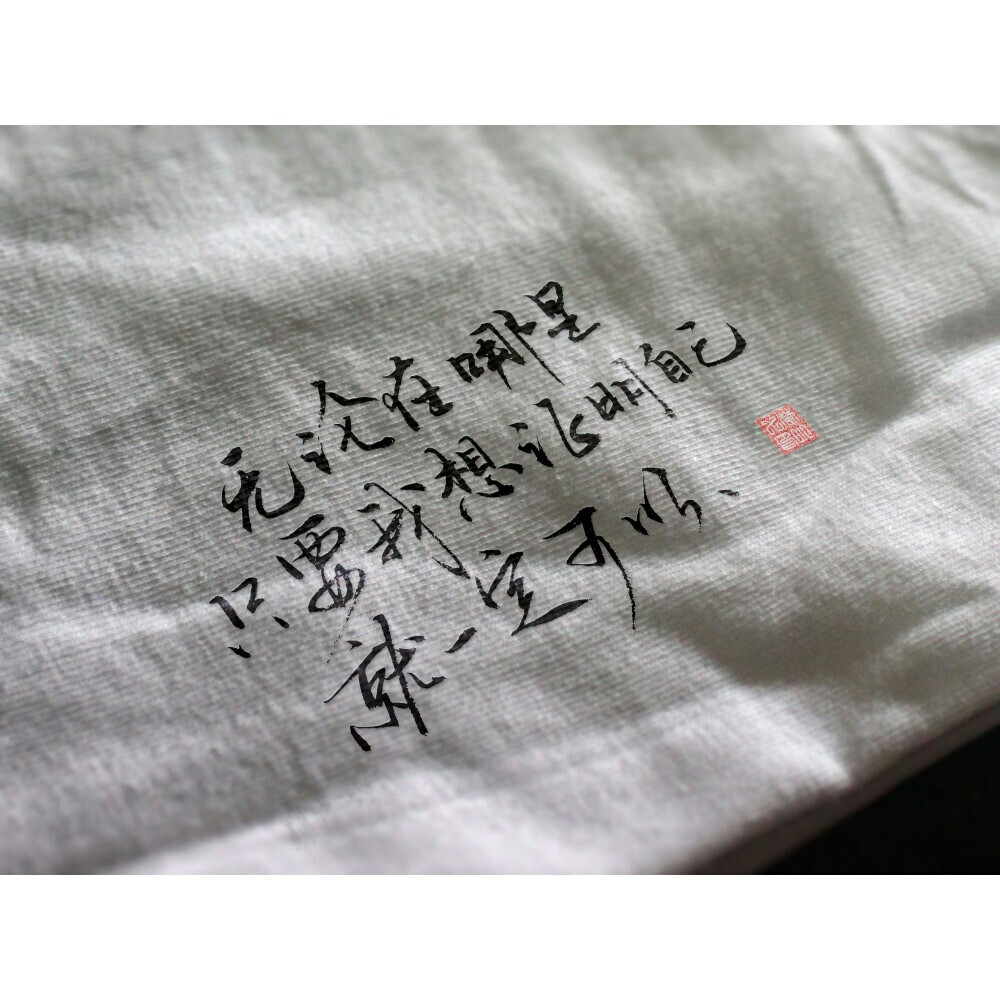 无论在哪里
只要我想证明自己
就一定可以